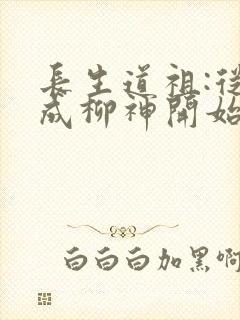 長生道祖:從
成柳神開始
白白白加黑啊